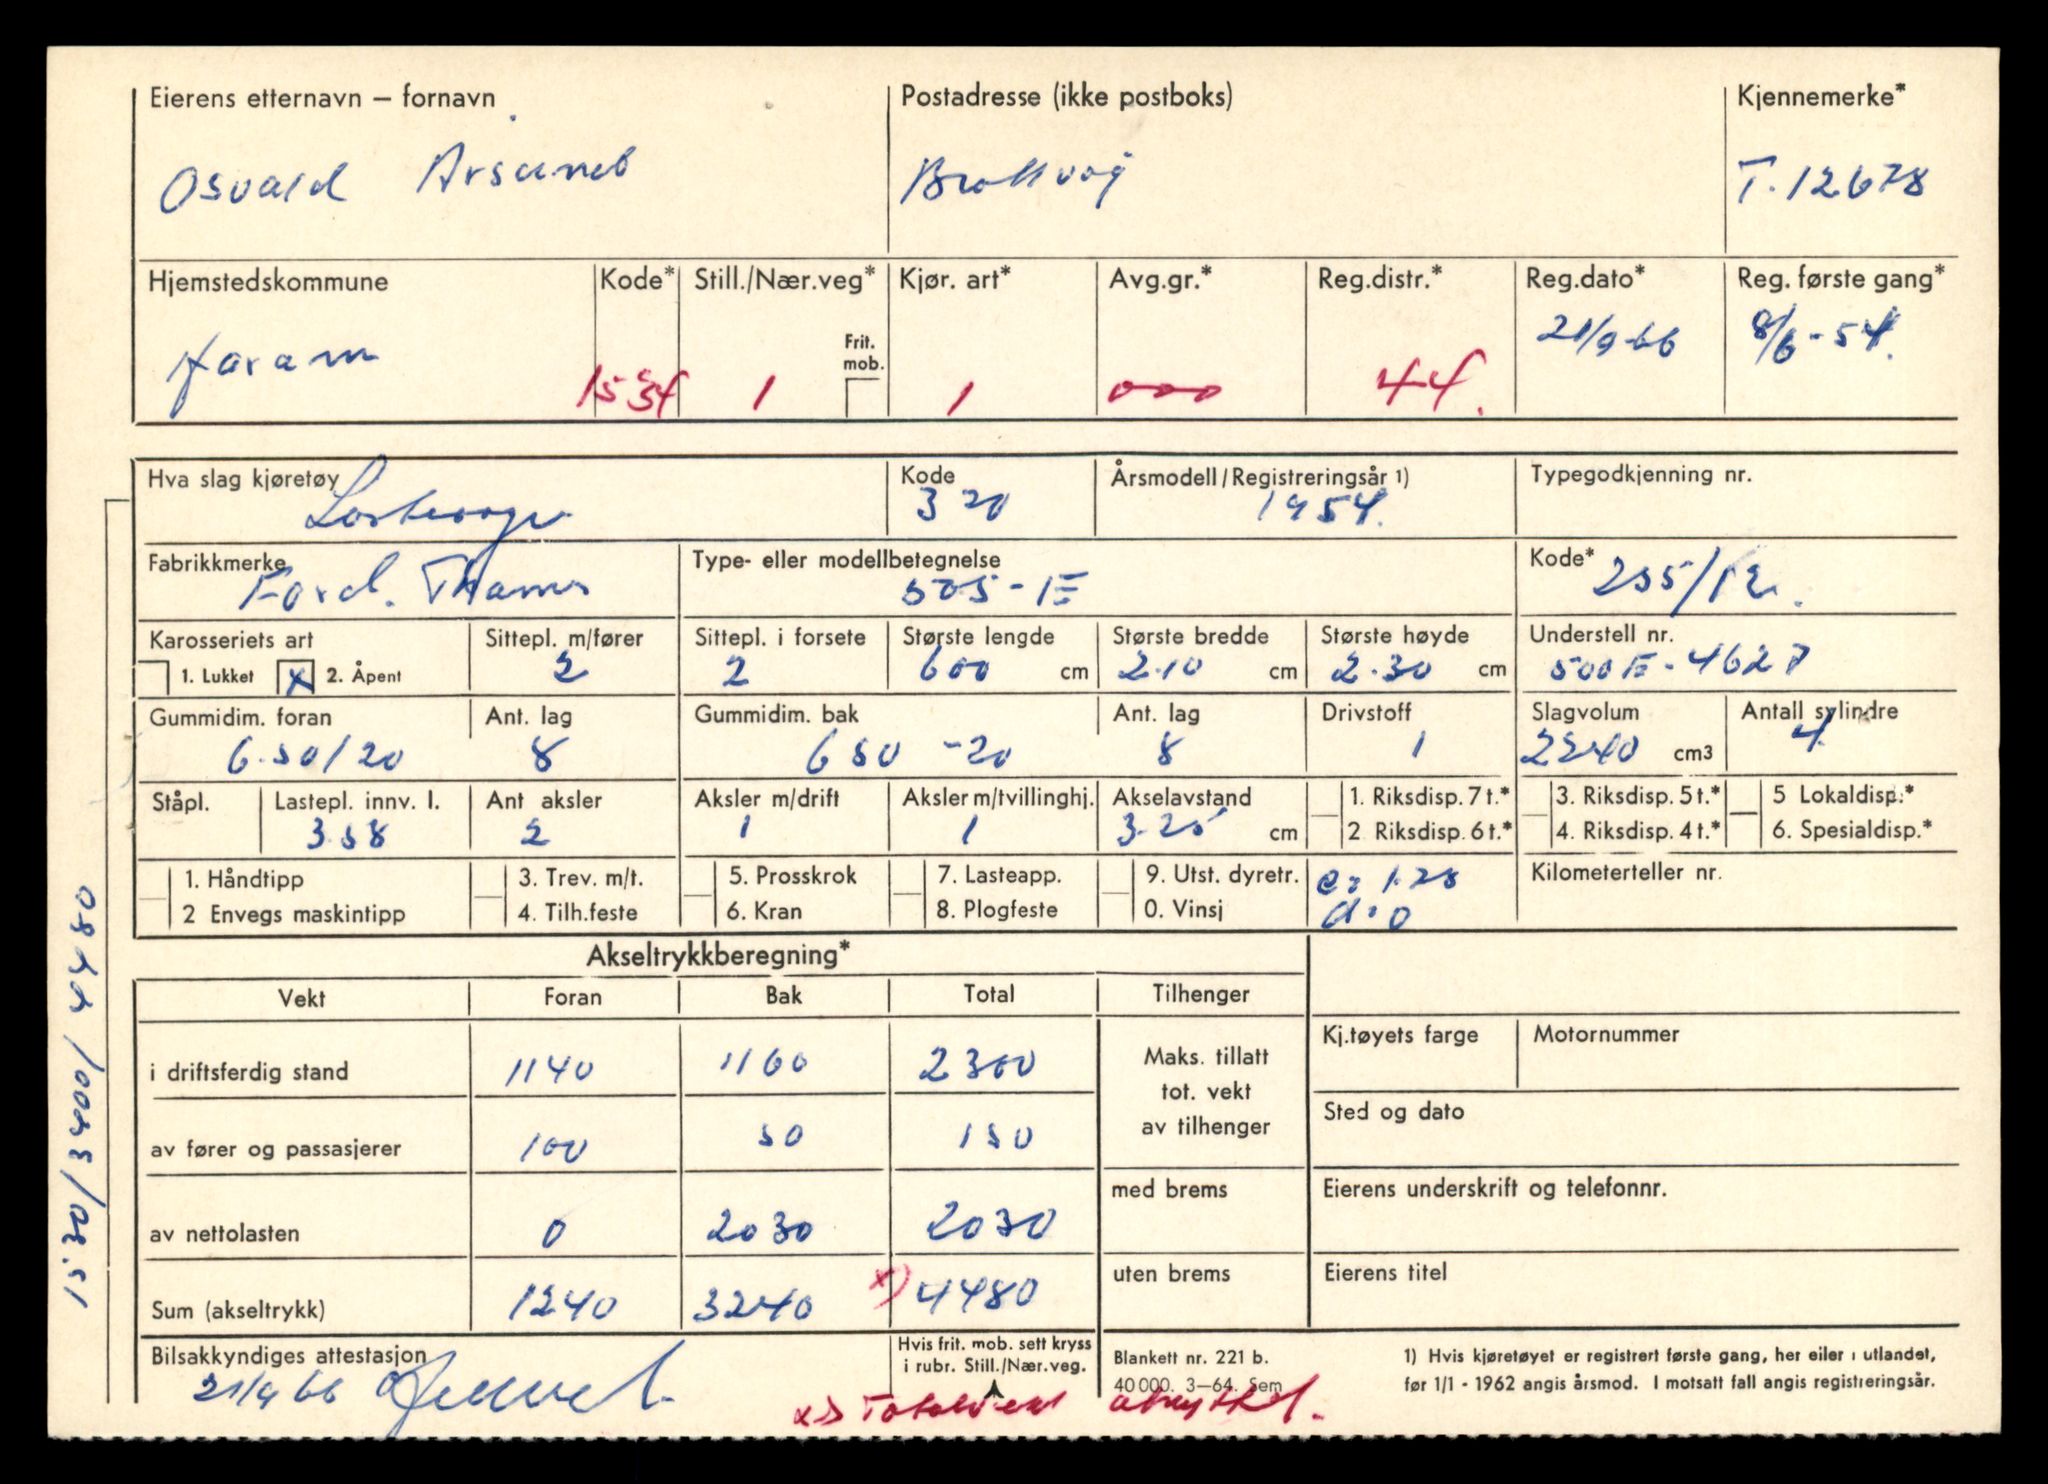 Eierens etternavn – fornavn
Postadresse (ikke postboks)
Kjennemerke*
Osvald Årsund
Brattvåg
T-12678
Hjemstedskommune
Kode*
Still./Nær.veg*
Kjør. art*
Avg.gr.*
Reg.distr.*
Reg.dato*
Reg. første gang*
Haram
1534
1
Frit. mob.
1
000
44.
21/9-66
8/6-54.
Hva slag kjøretøy
Kode
Årsmodell/Registreringsår 1)
Typegodkjenning nr.
Lastevogn
320
1954.
Fabrikkmerke
Type- eller modellbetegnelse
Kode*
Ford. Thames
505-E
255/12.
Karosseriets art
Sittepl. m/fører
Sittepl. i forsete
Største lengde
Største bredde
Største høyde
Understell nr.
1. Lukket
x 2. Åpent
2
2
600 cm
2.10 cm
2.30 cm
500E-4627
Gummidim. foran
Ant. lag
Gummidim. bak
Ant. lag
Drivstoff
Slagvolum
Antall sylindre
6.50/20
8
650 -20
8
1
2240 cm3
4.
Ståpl.
Lastepl. innv. l.
Ant aksler
Aksler m/drift
Aksler m/tvillinghj.
Akselavstand
1. Riksdisp. 7 t.*
3. Riksdisp. 5 t.*
5 Lokaldisp.*
3.58
2
1
1
3.25 cm
2 Riksdisp. 6 t.*
4. Riksdisp. 4 t.*
6. Spesialdisp.*
1. Håndtipp
3. Trev. m/t.
5. Prosskrok
7. Lasteapp.
9. Utst. dyretr.
e: 1.28
Kilometerteller nr.
2 Envegs maskintipp
4. Tilh.feste
6. Kran
8. Plogfeste
0. Vinsj
d: 0
Akseltrykkberegning*
Vekt
Foran
Bak
Total
Tilhenger
i driftsferdig stand
1140
1160
2300
Maks. tillatt
tot. vekt
av tilhenger
Kj.tøyets farge
Motornummer
av fører og passasjerer
100
50
150
Sted og dato
av nettolasten
0
2030
2030
med brems
Eierens underskrift og telefonnr.
Sum (akseltrykk)
1240
3240
x) 4480
uten brems
Eierens titel
Bilsakkyndiges attestasjon
21/9 66
Hvis frit. mob. sett kryss
i rubr. Still./Nær.veg.
Blankett nr. 221 b.
40 000. 3–64. Sem
1) Hvis kjøretøyet er registrert første gang, her eller i utlandet,
før 1/1 - 1962 angis årsmod. I motsatt fall angis registreringsår.
x) Totalvekt